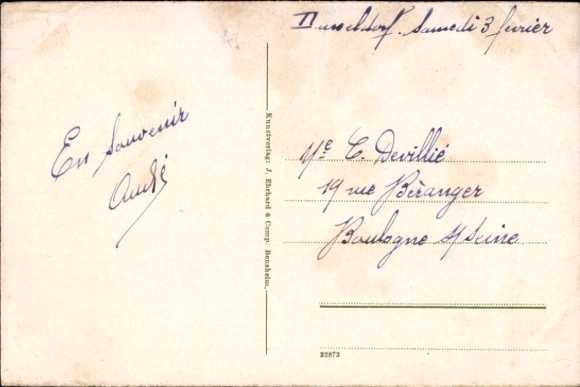 Dusseldorf. Samedi 3 fevrier
En Souvenir
André
Kunstverlag: J. Ehrhard & Comp. Bensheim.
Mre E. Devillié
19 rue Béranger
Boulogne s/Seine
22873